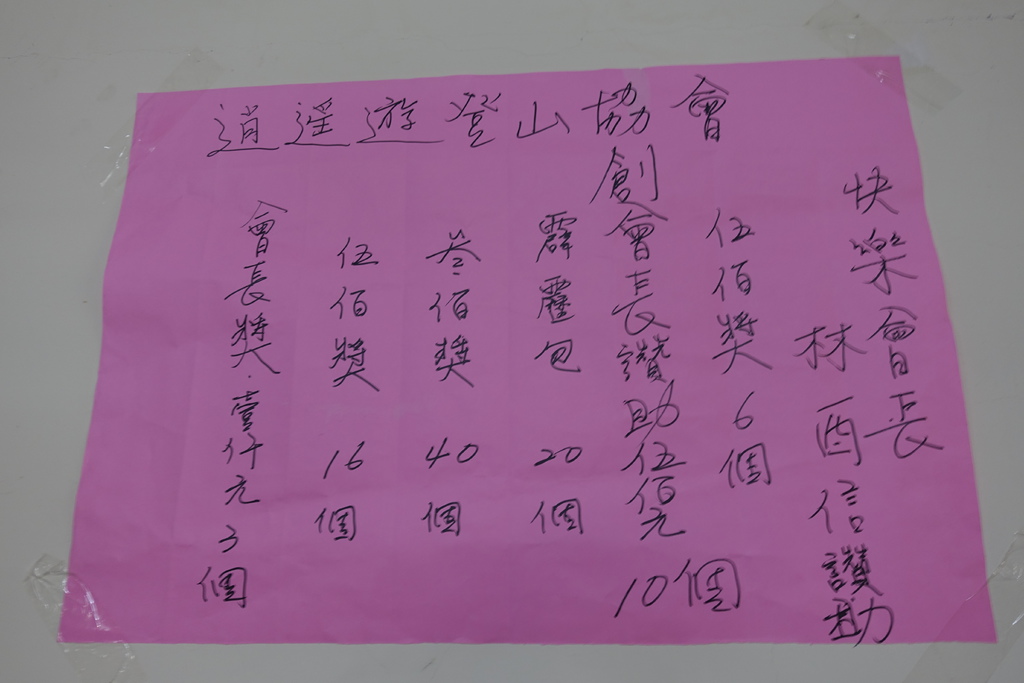 逍遥遊登山協會
快樂會長
林酉信讚助
伍佰獎6個
創會長讚助伍佰元10個
霹靂包20個
叁佰獎40個
伍佰獎16個
會長獎.壹仟元3個